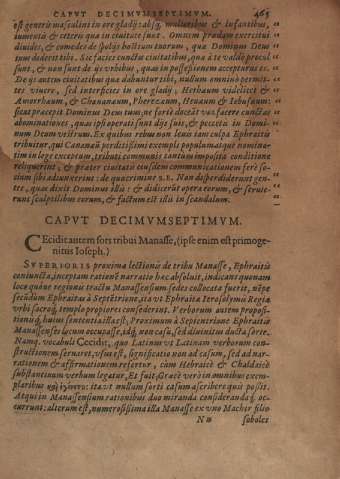 CAPVT DECIMVMSEPTIMVM. 465
est generis masculini in ore gladij absq, mulieribus & infantibus,
iumentis & ceteris quæ in ciuitate sunt. Omnem prædam exercitui
diuides, & comedes de spolijs hostium tuorum, quæ Dominus Deus
tuus dederit tibi. Sic facies cunctis ciuitatibus, quæ à te valde procul
sunt, & non sunt de ijs vrbibus, quas in possessionem accepturus es.
De ijs autem ciuitatibus quæ dabuntur tibi, nullum omnino permit-
tes viuere, sed interficies in ore gladij, Hethæum videlicet &
Amorrhæum, & Chananæum, Pherezæum, Heuæum & Iebusæum:
sicut præcepit Dominus Deus tuus, ne fortè doceāt vos facere cunctas
abominationes, quas ipsi operati sunt dijs suis, & peccetis in Domi-
num Deum vestrum. Ex quibus rebus non leuis tum culpa Ephraitis
tribuitur, qui Cananæū perditissimi exempli populum atque nomina-
tim in lege exceptum, tributi communis tantùm imposita conditione
reliquerint, & præter ciuitatis eiusdem communicationem ferè so-
cium sibi adiunxerint: de qua crimine 2.R. Non disperdiderunt gen-
tes, quas dixit Dominus illis: & didicerūt opera eorum, & seruie-
runt sculptilibus eorum, & factum est illis in scandalum.
CAPVT DECIMVMSEPTIMVM.
CEcidit autem sors tribui Manasse, (ipse enim est primoge-
nitus Ioseph.)
SVPERIORIS proxima lectionis de tribu Manasse, Ephraitis
coniuncta, inceptam rationē narratio hæc absoluit, indicans quonam
loco quáue regionis tractu Manassensium sedes collocata fuerit, nēpe
secūdùm Ephraitas à Septētrione, ita vt Ephraitæ Ierosolymis Regiæ
vrbi sacróq, templo propiores consederint. Verborum autem proposi-
tioniq, huius sententia ista est, Proximum à Septentrione Ephraitis
Manassenses locum occupasse, idq, non casu, sed diuinitus ducta sorte.
Namq, vocabuli Cecidit, quo Latinus vt Latinam verborum con-
structionem seruaret, vsus est, significatio non ad casum, sed ad nar-
rationem & affirmationem refertur, cùm Hebraicè & Chaldaicè
substantiuum verbum legatur, Et fuit, Græcè verò in omnibus exem-
plaribus καὶ ἐγένετο: ita vt nullum sorti casum ascribere quis possit.
Atqui in Manassensium rationibus duo miranda considerandáq, oc-
currunt: alterum est, numerosissima illa Manasse ex vno Machir filio
Nn soboles